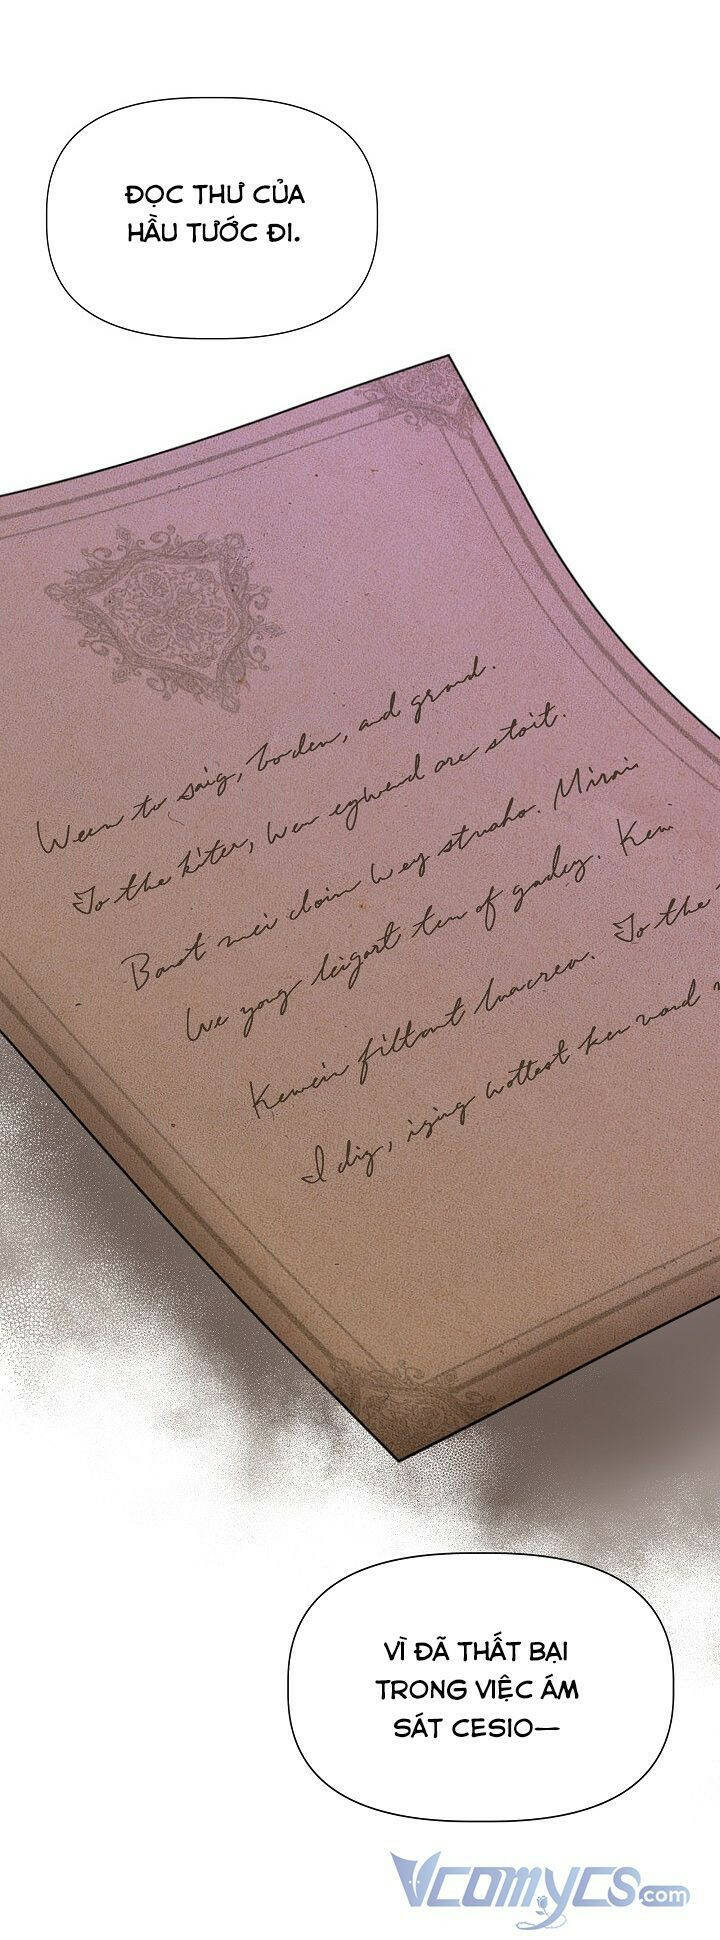 ĐỌC THƯ CỦA
HẦU TƯỚC ĐI.
Ween to saig, boden, and grand.
To the kiter, wen egwend are stoit.
Banot mei cloin wey strusho. Mirai
We yong leigart ten of gadey. Kem
Kewein filtont luacrea. To the
I dig, iging wottest ken vard
VÌ ĐÃ THẤT BẠI
TRONG VIỆC ÁM
SÁT CESIO—
VCOMYCS.com